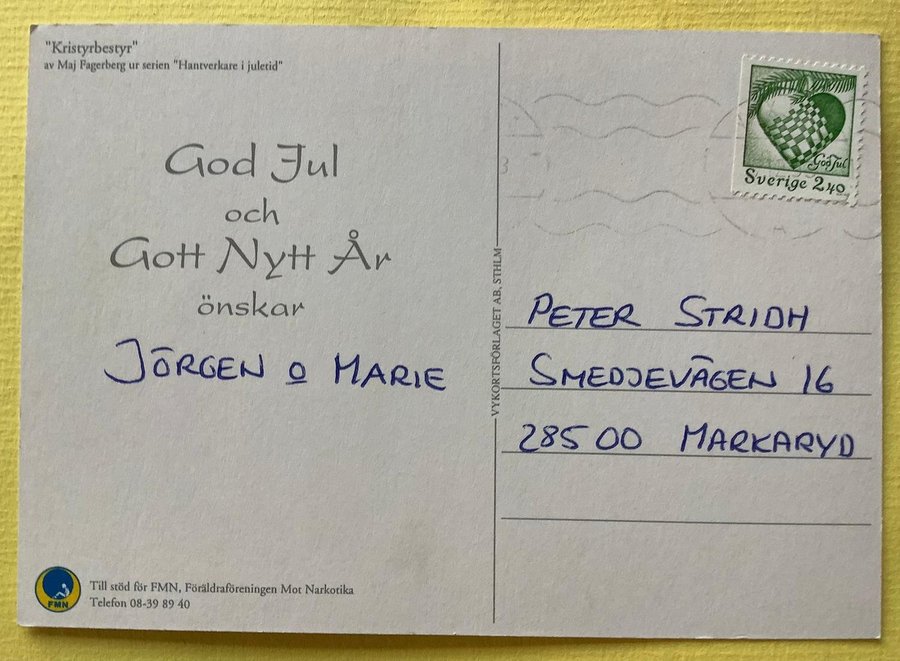 "Kristyrbestyr"
av Maj Fagerberg ur serien "Hantverkare i juletid"
God Jul
och
Gott Nytt År
önskar
JÖRGEN o MARIE
FMN
Till stöd för FMN, Föräldraföreningen Mot Narkotika
Telefon 08-39 89 40
VYKORTSFÖRLAGET AB, STHLM
God Jul
Sverige 2 40
PETER STRIDH
SMEDJEVÄGEN 16
285 00 MARKARYD